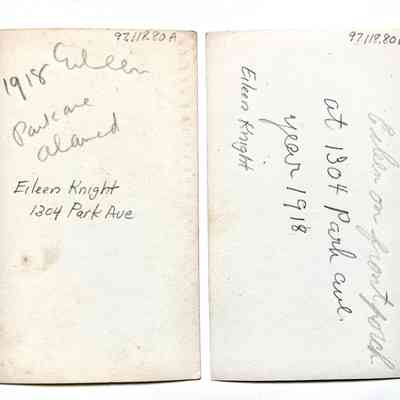 97.118.80 A
1918 Eileen
Park ave
Alamed
Eileen Knight
1304 Park Ave
97.118.80
Eileen on front porch
at 1304 Park ave.
year 1918
Eileen Knight